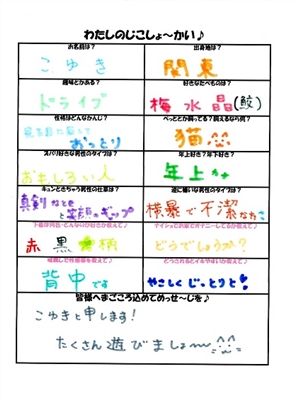 わたしのじこしょ～かい♪
お名前は？
出身地は？
こゆき
関東
趣味とかある？
好きなたべものは？
ドライブ
梅水晶(鮫)
性格はどんなかんじ？
ペットとか飼ってる？飼えるなら何？
おっとり
猫
ズバリ好きな男性のタイプは？
年上好き？年下好き？
おもしろい人
年上かな
キュンとさせちゃう男性の仕草は？
逆に嫌いな男性のタイプは？
真剣なとき
と笑顔のギャップ
横暴で不潔な
赤 黒 柄
どうでしょうか？
背中です
やさしくじっとりと！
皆様へまごころ込めてめっせ～じを♪
こゆきと申します！
たくさん遊びましょ〜